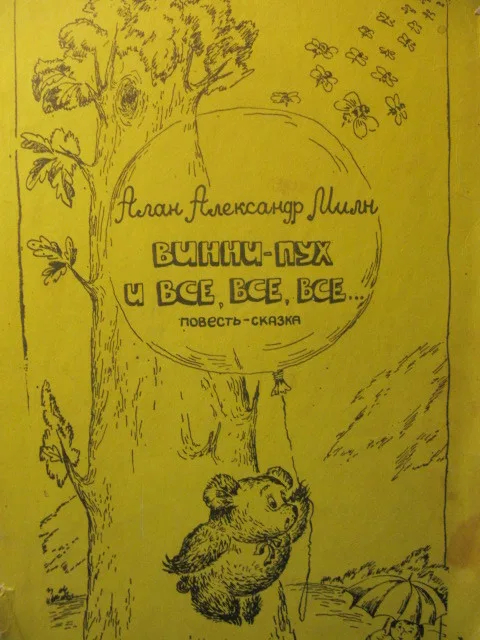 Алан Александр Милн
ВИННИ-ПУХ
И ВСЕ, ВСЕ, ВСЕ...
ПОВЕСТЬ-СКАЗКА